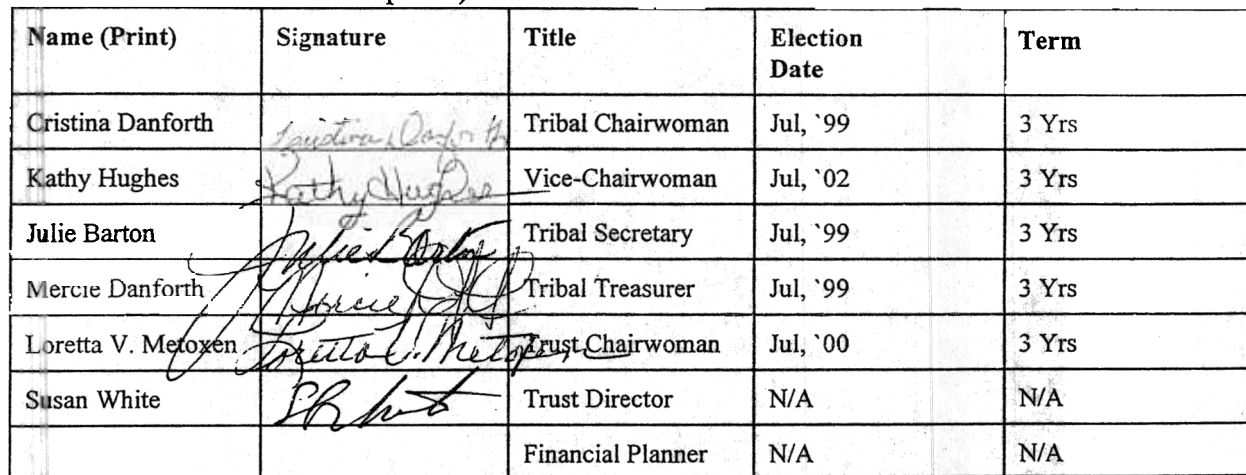 Name (Print) Signature Title Election Date Term
Cristina Danforth Cristina Danforth Tribal Chairwoman Jul, `99 3 Yrs
Kathy Hughes Kathy Hughes Vice-Chairwoman Jul, `02 3 Yrs
Julie Barton Julie Barton Tribal Secretary Jul, `99 3 Yrs
Mercie Danforth Mercie Tribal Treasurer Jul, `99 3 Yrs
Loretta V. Metoxen Loretta V. Metoxen Trust Chairwoman Jul, `00 3 Yrs
Susan White Trust Director N/A N/A
Financial Planner N/A N/A